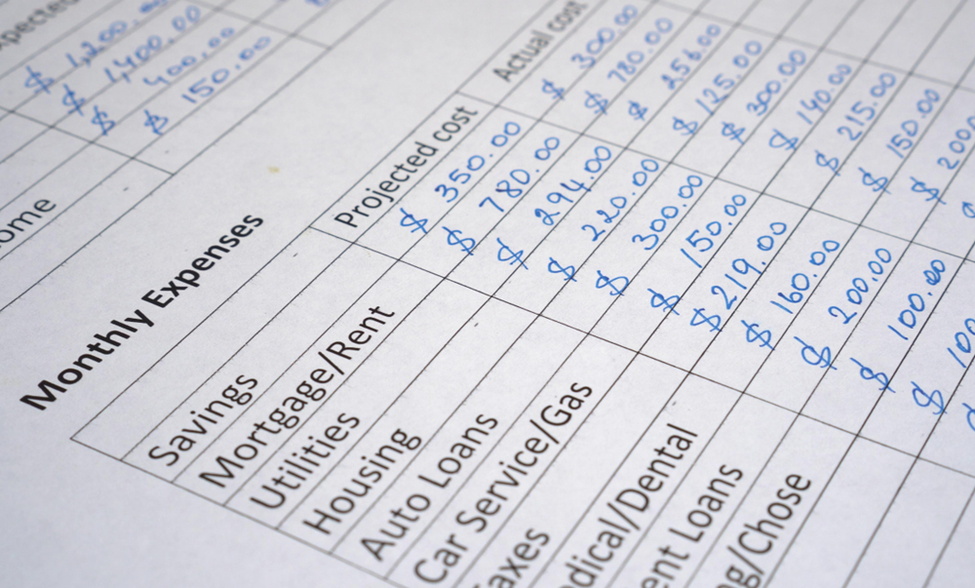 $ 1,200.00
$ 1,400.00
$ 400.00
$ 150.00
ome
Monthly Expenses
Projected cost Actual cost
Savings $ 350.00 $ 300.00
Mortgage/Rent $ 780.00 $ 780.00
Utilities $ 294.00 $ 256.00
Housing $ 220.00 $ 125.00
Auto Loans $ 300.00 $ 300.00
Car Service/Gas $ 150.00 $ 140.00
axes $ 219.00 $ 215.00
dical/Dental $ 160.00 $ 150.00
ent Loans $ 200.00 $ 200
g/Chose $ 100.00 $
$ 100